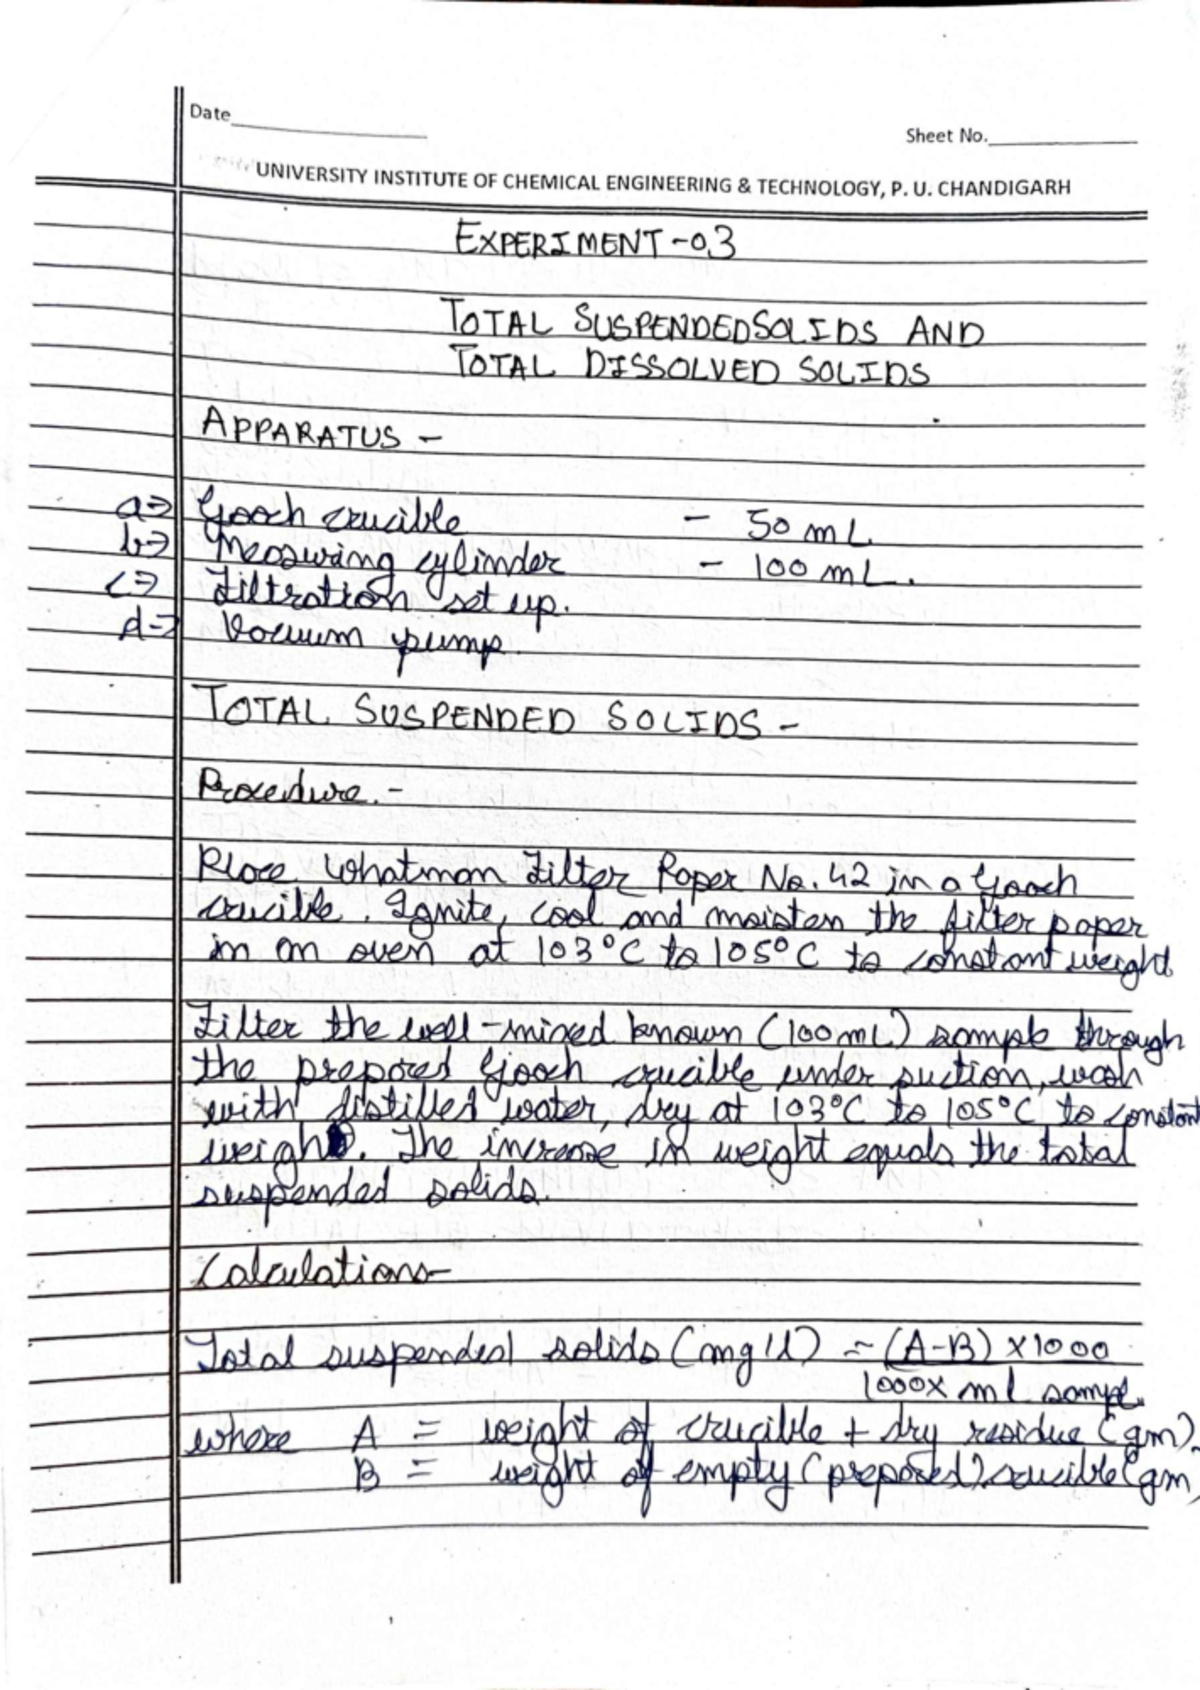 Date
Sheet No.
UNIVERSITY INSTITUTE OF CHEMICAL ENGINEERING & TECHNOLOGY, P. U. CHANDIGARH
EXPERIMENT-03
TOTAL SUSPENDED SOLIDS AND
TOTAL DISSOLVED SOLIDS
APPARATUS -
a⇒ Gooch crucible - 50 mL
b⇒ Measuring cylinder - 100 mL.
c⇒ Filtration set up.
d⇒ Vacuum pump.
TOTAL SUSPENDED SOLIDS -
Procedure.-
Place Whatman Filter Paper No. 42 in a Gooch
crucible. Ignite, cool and moisten the filter paper
in an oven at 103°C to 105°C to constant weight
Filter the well-mixed known (100mL) sample through
the prepared Gooch crucible under suction, wash
with distilled water, dry at 103°C to 105°C to constant
weight. The increase in weight equals the total
suspended solids.
Calculations-
Total suspended solids (mg/l) = (A-B) x1000
1000x ml sampl.
where A = weight of crucible + dry residue (gm).
B = weight of empty (prepared) crucible (gm)